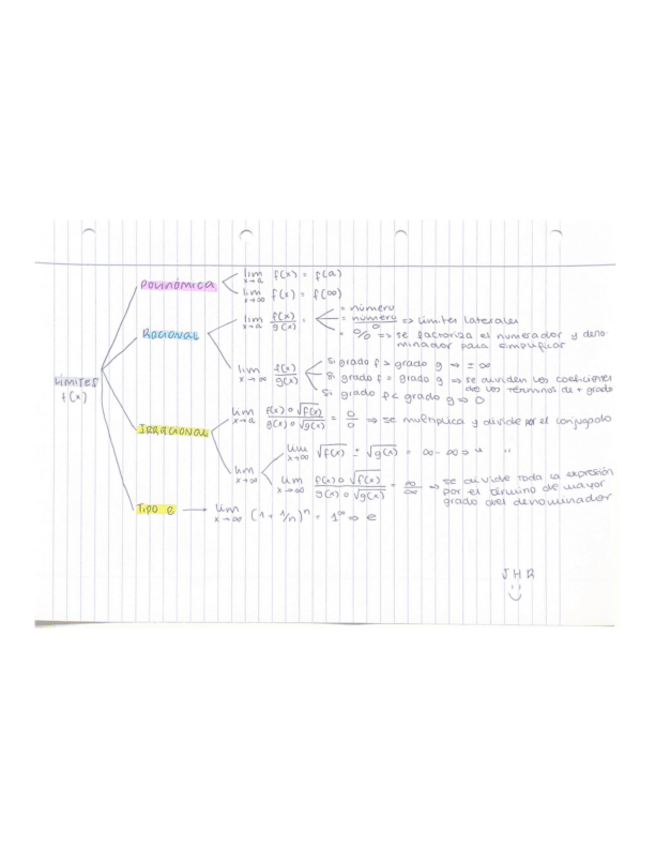 Límites f(x)
Polinómica
lim x→a f(x) = f(a)
lim x→∞ f(x) = f(∞)
Racional
lim x→a f(x)/g(x) =
= número
= número/0 => límites laterales
= 0/0 => se factoriza el numerador y deno-
minador para simplificar
lim x→∞ f(x)/g(x)
Si grado f > grado g → ± ∞
Si grado f = grado g → se dividen los coeficientes
de los términos de + grado
Si grado f < grado g → 0
Irracional
lim x→a f(x) o √f(x) / g(x) o √g(x) = 0/0 → se multiplica y divide por el conjugado
lim x→∞
lim x→∞ √f(x) ± √g(x) = ∞-∞ → " "
lim x→∞ f(x) o √f(x) / g(x) o √g(x) = ∞/∞ → se divide toda la expresión
por el término de mayor
grado del denominador
Tipo e → lim x→∞ (1 + 1/n)ⁿ = 1^∞ => e
JHR